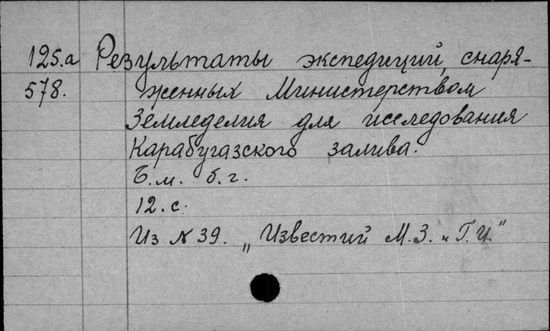 125.а Результаты экспедиций, снаря-
578. женных Министерством
Земледелия для исследования
Карабугазского залива.
Б.м. б.г.
12.с.
Из № 39. „Известий М.З. и Г.И."